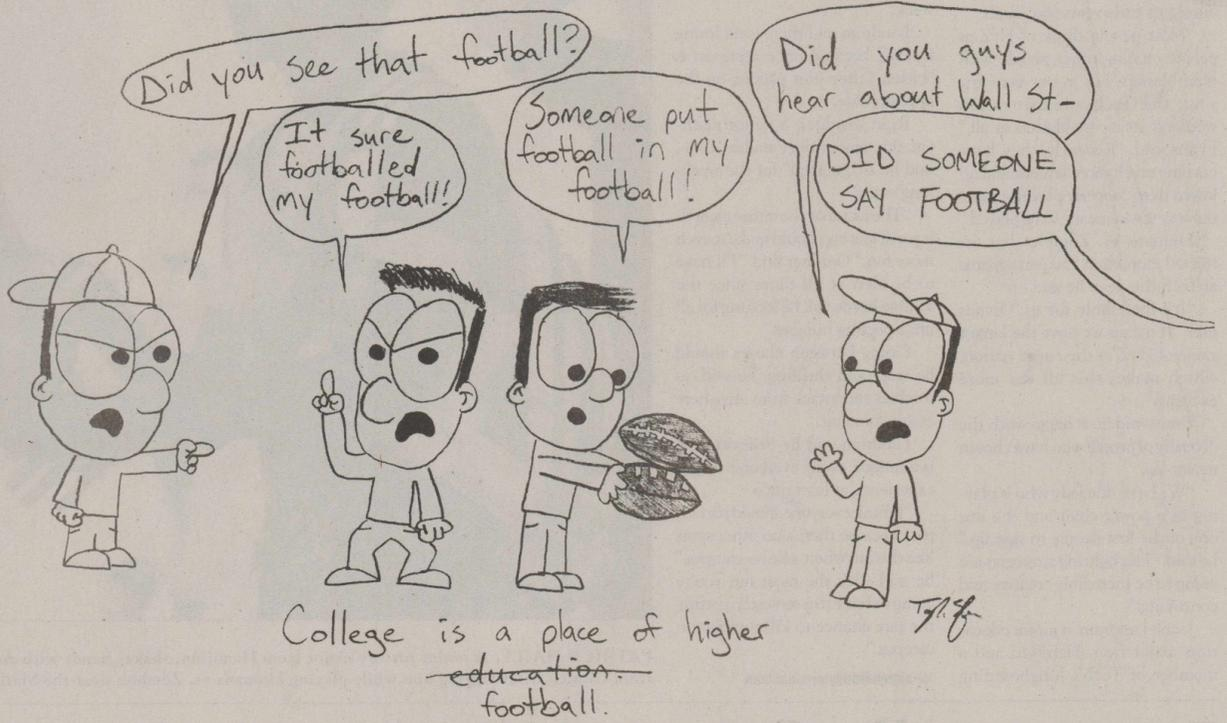 Did you see that football?
It sure
footballed
my football!
Someone put
football in my
football!
Did you guys
hear about Wall St-
DID SOMEONE
SAY FOOTBALL
College is a place of higher
education.
football.